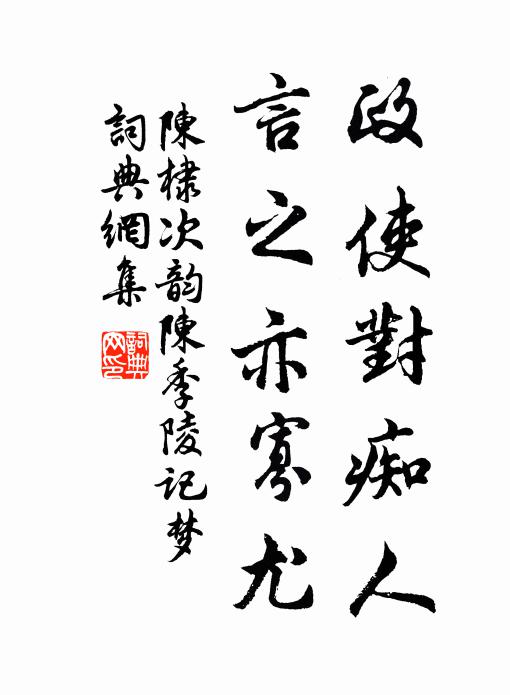 政使對痴人
言之亦寡尤
陳棣次韵陳季陵记梦
詞典網集
詞典网印